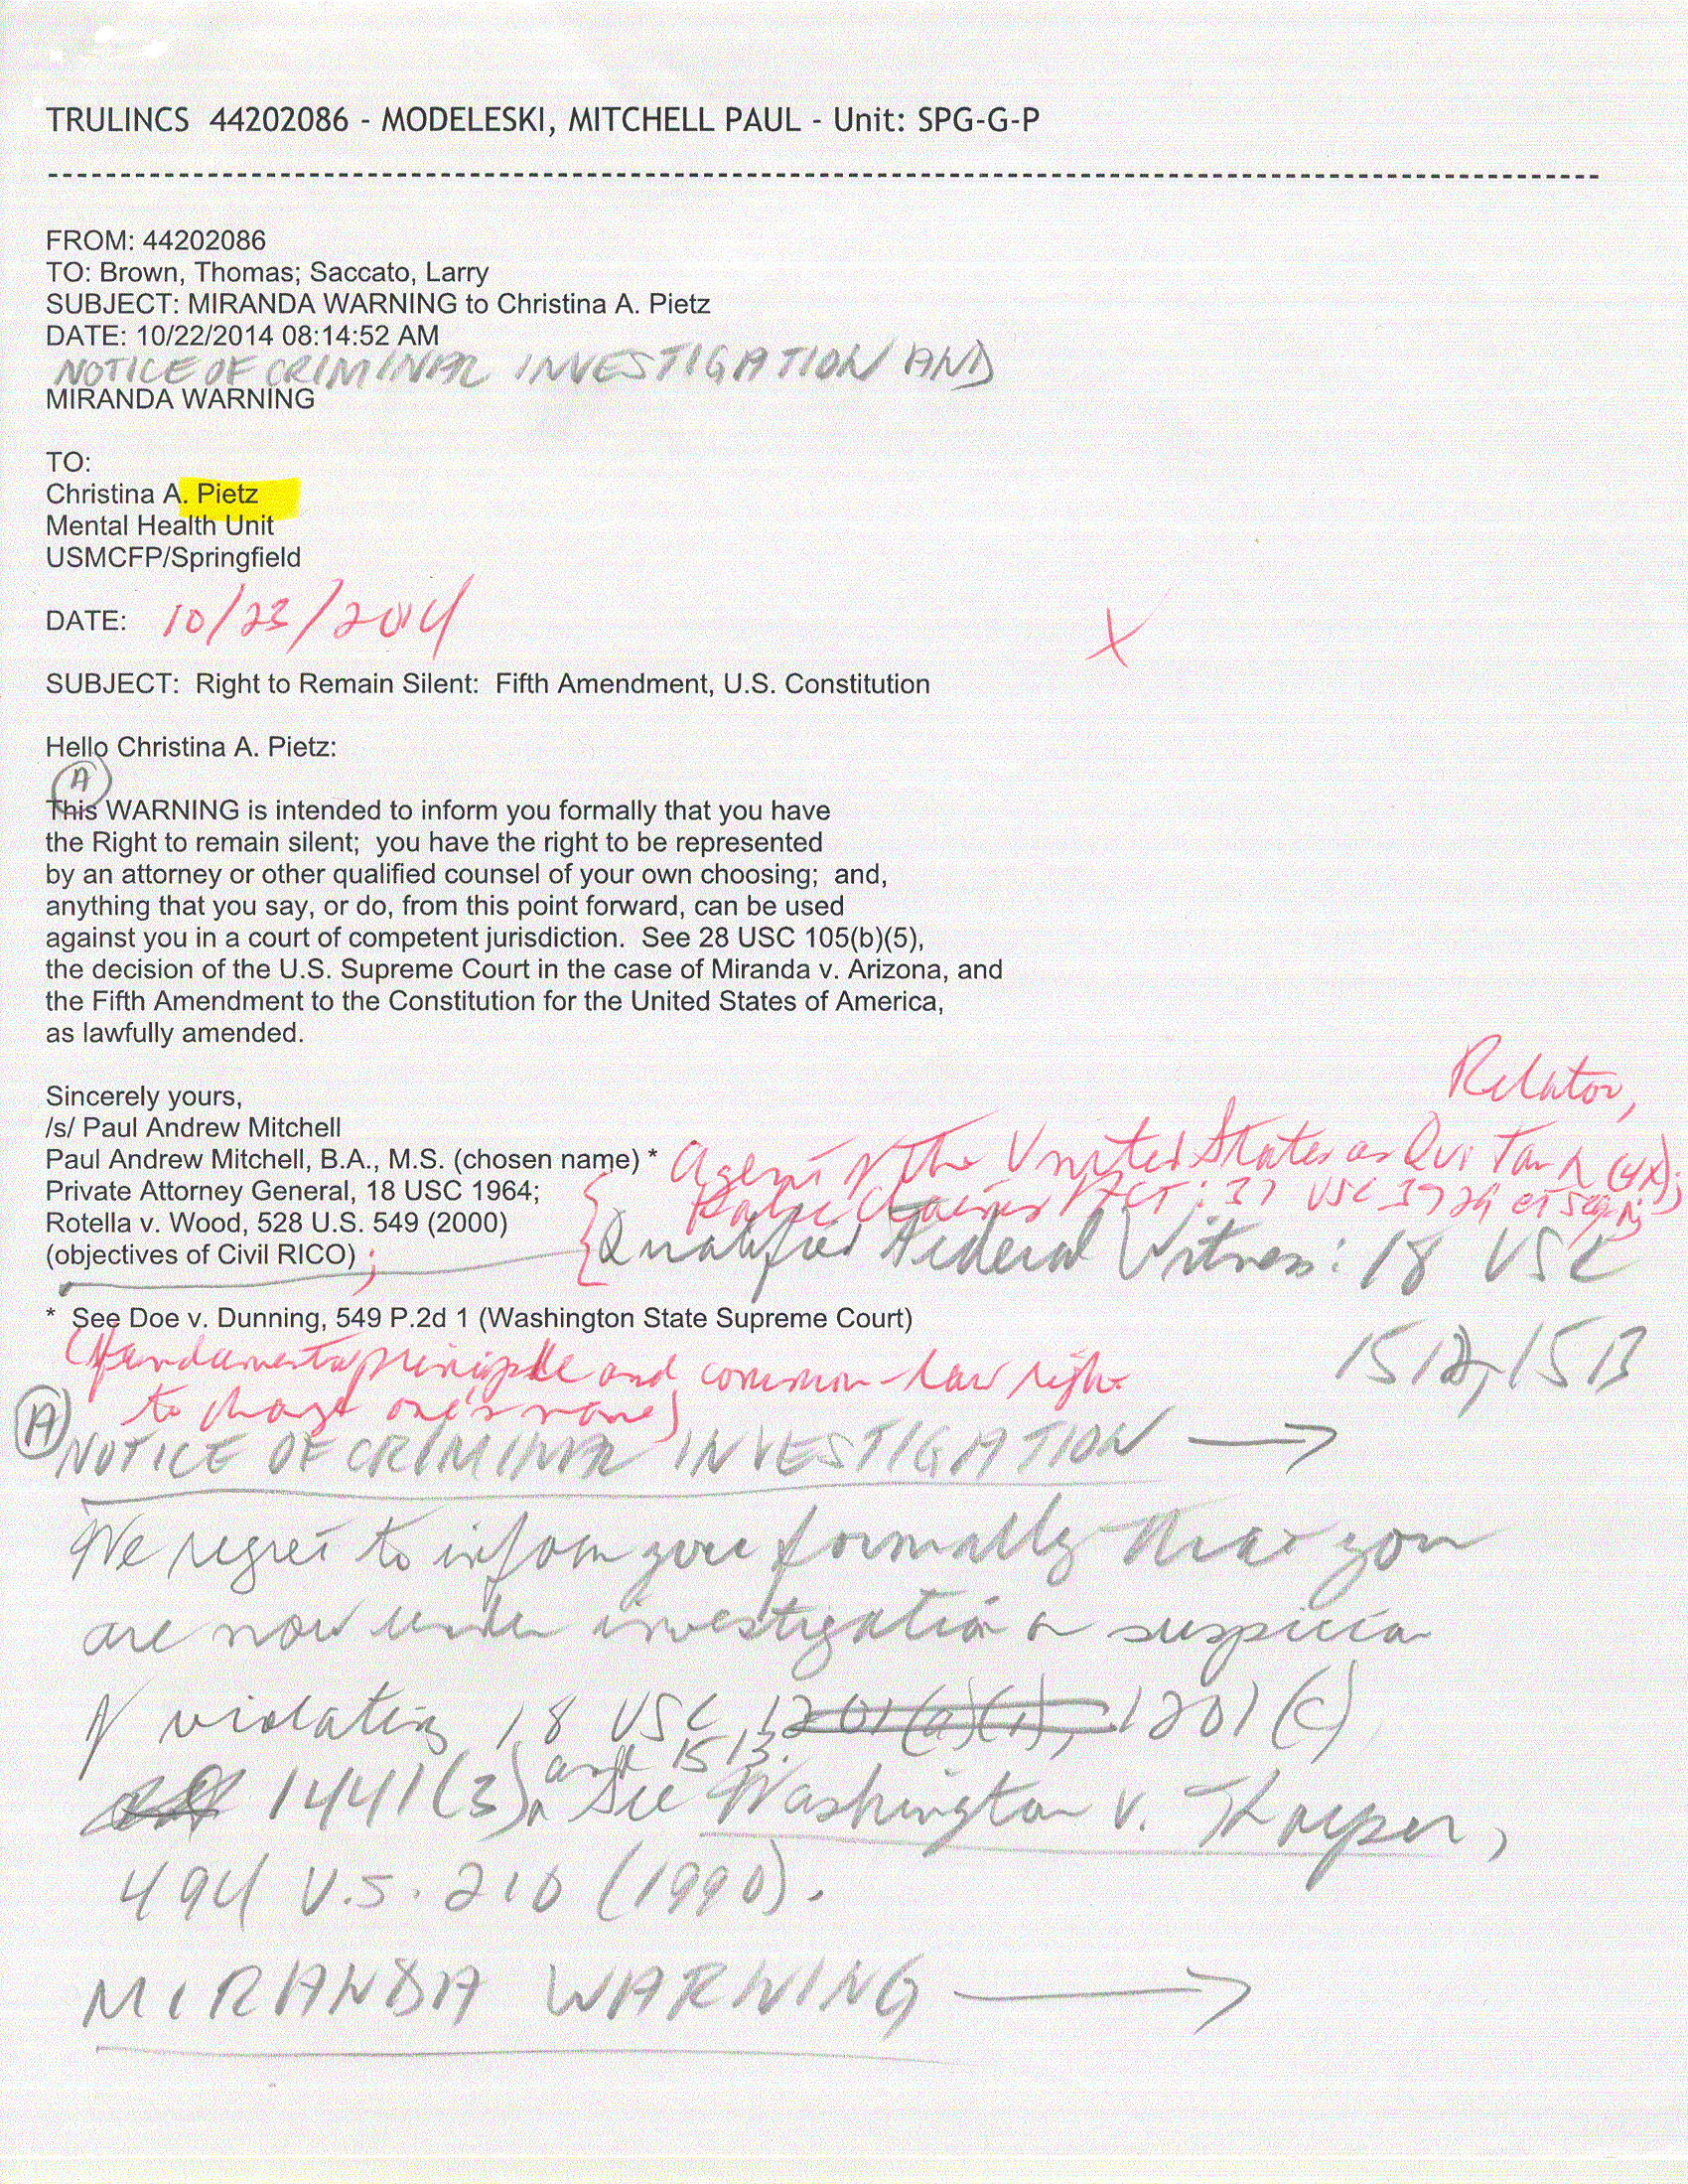 TRULINCS 44202086 - MODELESKI, MITCHELL PAUL - Unit: SPG-G-P
--------------------------------------------------------------------------------
FROM: 44202086
TO: Brown, Thomas; Saccato, Larry
SUBJECT: MIRANDA WARNING to Christina A. Pietz
DATE: 10/22/2014 08:14:52 AM
NOTICE OF CRIMINAL INVESTIGATION AND
MIRANDA WARNING
TO:
Christina A. Pietz
Mental Health Unit
USMCFP/Springfield
DATE: 10/23/2014
X
SUBJECT: Right to Remain Silent: Fifth Amendment, U.S. Constitution
Hello Christina A. Pietz:
A
This WARNING is intended to inform you formally that you have
the Right to remain silent; you have the right to be represented
by an attorney or other qualified counsel of your own choosing; and,
anything that you say, or do, from this point forward, can be used
against you in a court of competent jurisdiction. See 28 USC 105(b)(5),
the decision of the U.S. Supreme Court in the case of Miranda v. Arizona, and
the Fifth Amendment to the Constitution for the United States of America,
as lawfully amended.
Relator,
Sincerely yours,
/s/ Paul Andrew Mitchell
Paul Andrew Mitchell, B.A., M.S. (chosen name) * Agent of the United States as Qui Tam (4X);
Private Attorney General, 18 USC 1964; False Claims Act: 31 USC 3729 et seq.;
Rotella v. Wood, 528 U.S. 549 (2000)
(objectives of Civil RICO) ; Qualified Federal Witness: 18 USC
1512, 1513
* See Doe v. Dunning, 549 P.2d 1 (Washington State Supreme Court)
(fundamental principle and common-law right
to change one's name)
A NOTICE OF CRIMINAL INVESTIGATION →
We regret to inform you formally that you
are now under investigation on suspicion
of violating 18 USC 1201(a)(1), 1201(c)
1441(3), and 1513. See Washington v. Harper,
494 U.S. 210 (1990).
MIRANDA WARNING →